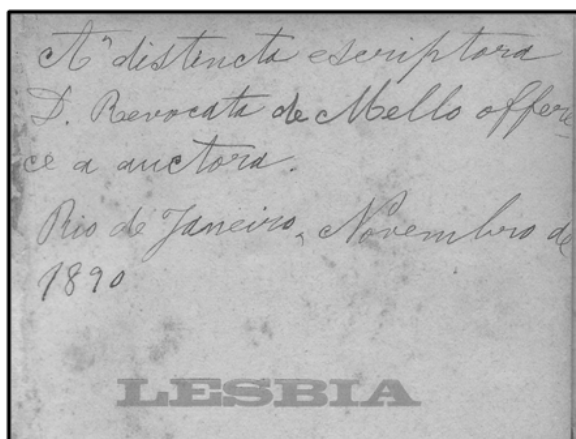 Á distincta escriptora
D. Revocata de Mello offere-
ce a auctora.
Rio de Janeiro, Novembro de
1890
LESBIA